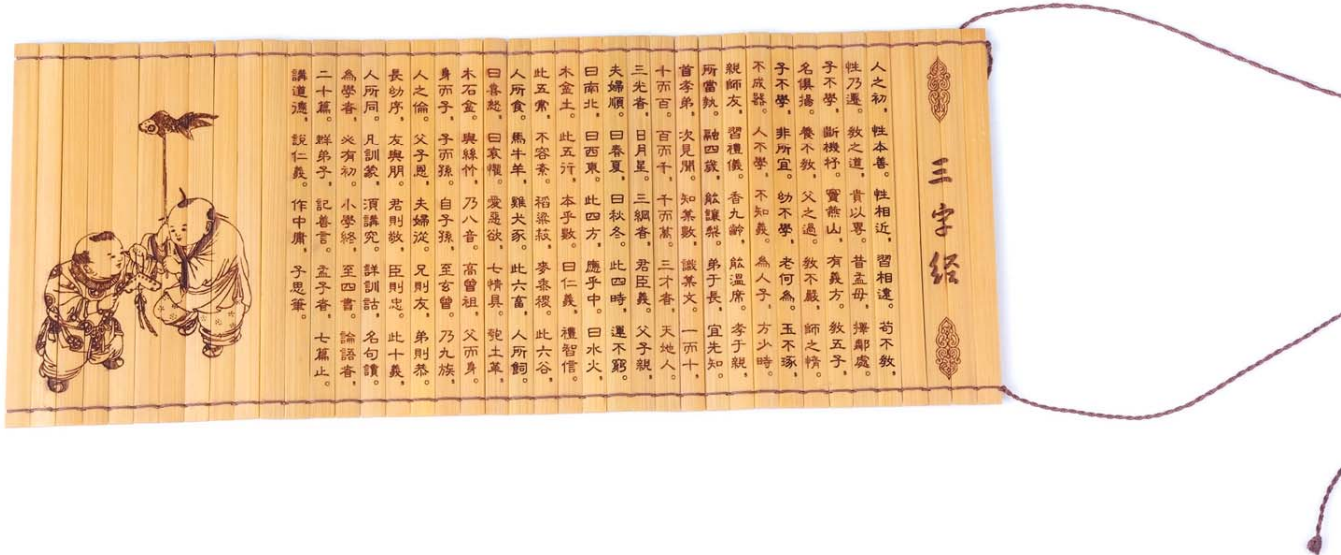 三字经
人之初，性本善。性相近，習相遠。苟不教，
性乃遷。教之道，貴以專。昔孟母，擇鄰處。
子不學，斷機杼。竇燕山，有義方。教五子，
名俱揚。養不教，父之過。教不嚴，師之惰。
子不學，非所宜。幼不學，老何為。玉不琢，
不成器。人不學，不知義。為人子，方少時。
親師友，習禮儀。香九齡，能溫席。孝于親，
所當執。融四歲，能讓梨。弟于長，宜先知。
首孝弟，次見聞。知某數，識某文。一而十，
十而百。百而千，千而萬。三才者，天地人。
三光者，日月星。三綱者，君臣義。父子親，
夫婦順。曰春夏，曰秋冬。此四時，運不窮。
曰南北，曰西東。此四方，應乎中。曰水火，
木金土。此五行，本乎數。曰仁義，禮智信。
此五常，不容紊。稻粱菽，麥黍稷。此六谷，
人所食。馬牛羊，雞犬豕。此六畜，人所飼。
曰喜怒，曰哀懼。愛惡欲，七情具。匏土革，
木石金。與絲竹，乃八音。高曾祖，父而身。
身而子，子而孫。自子孫，至玄曾。乃九族，
人之倫。父子恩，夫婦從。兄則友，弟則恭。
長幼序，友與朋。君則敬，臣則忠。此十義，
人所同。凡訓蒙，須講究。詳訓詁，名句讀。
為學者，必有初。小學終，至四書。論語者，
二十篇。群弟子，記善言。孟子者，七篇止。
講道德，說仁義。作中庸，子思筆。